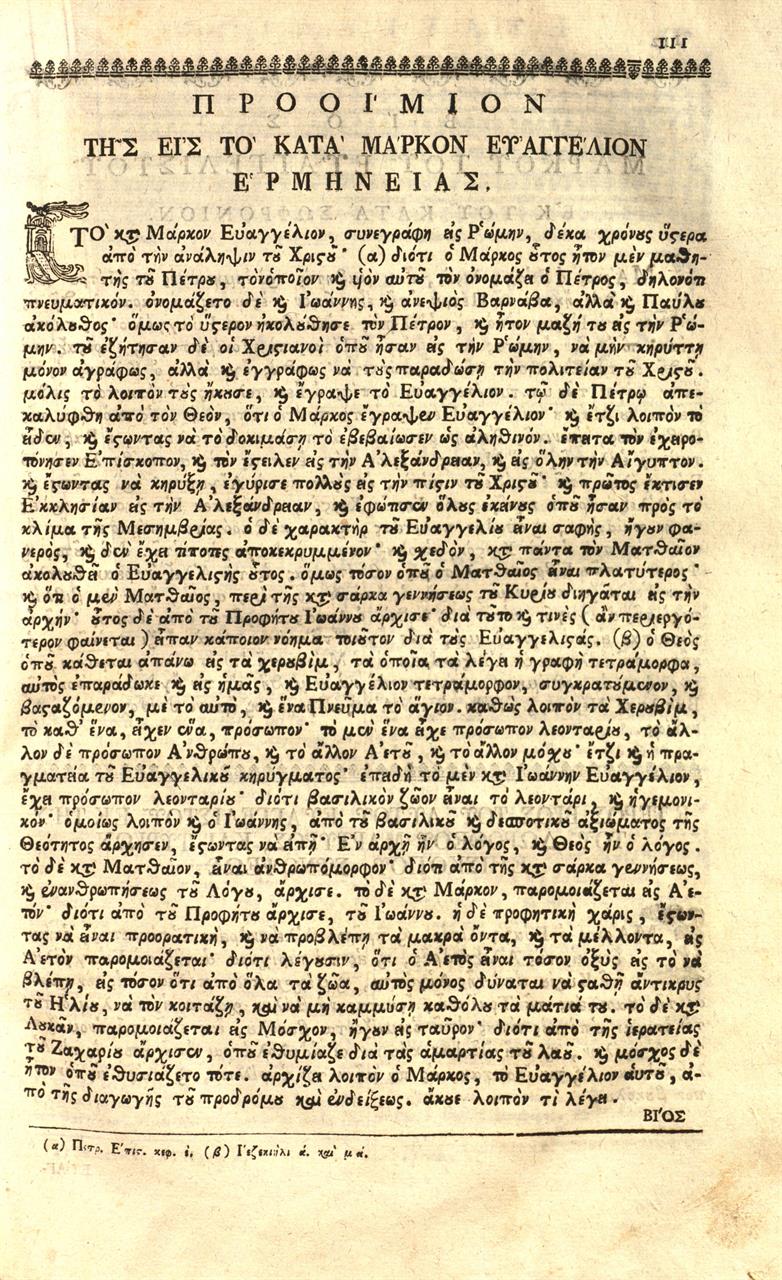 III
ΠΡΟΟΙ´ΜΙΟΝ
ΤΗ῀Σ ΕΙ᾽Σ ΤΟ` ΚΑΤΑ` ΜΑ´ΡΚΟΝ ΕΥ᾽ΑΓΓΕ´ΛΙΟΝ
Ε῾ΡΜΗΝΕΙΑΣ.
ΤΟ` κτ̀ Μάρκον Εὐαγγέλιον, συνεγράφη εἰς Ῥώμην, δέκα χρόνȣς ὕϛερα
ἀπὸ τὴν ἀνάληψιν τȣ͂ Χριϛȣ͂· (α) διότι ὁ Μάρκος ȣ̓͂τος ἦτον μὲν μαθη-
τὴς τȣ͂ Πέτρȣ, τὸνὁποῖον ϗ̀ ἱὸν αὐτȣ͂ τὸν ὀνομάζει ὁ Πέτρος, δηλονότι
πνευματικόν. ὀνομάζετο δὲ ϗ̀ Ἰωάννης, ϗ̀ ἀνεψιὸς Βαρνάβα, ἀλλὰ ϗ̀ Παύλȣ
ἀκόλȣθος· ὅμως τὸ ὕϛερον ἠκολȣ́θησε τὸν Πέτρον, ϗ̀ ἦτον μαζή τȣ εἰς τὴν Ῥώ-
μην. τȣ͂ ἐζήτησαν δὲ οἱ Χριϛιανοὶ ὁπȣ͂ ἦσαν εἰς τὴν Ῥώμην, νὰ μὴν κηρύττῃ
μόνον ἀγράφως, ἀλλὰ ϗ̀ ἐγγράφως νὰ τȣ̀ς παραδώσῃ τὴν πολιτείαν τȣ͂ Χριϛȣ͂.
μόλις τὸ λοιπὸν τȣ̀ς ἤκȣσε, ϗ̀ ἔγραψε τὸ Εὐαγγέλιον. τῷ δὲ Πέτρῳ ἀπε-
καλύφθη ἀπὸ τὸν Θεὸν, ὅτι ὁ Μάρκος ἔγραψεν Εὐαγγέλιον· ϗ̀ ἔτζι λοιπὸν τὸ
εἶδεν, ϗ̀ ἔϛωντας νὰ τὸ δοκιμάσῃ τὸ ἐβεβαίωσεν ὡς ἀληθινόν. ἔπειτα τὸν ἐχειρο-
τόνησεν Ἐπίσκοπον, ϗ̀ τὸν ἔϛειλεν εἰς τὴν Ἀλεξάνδρειαν, ϗ̀ εἰς ὅλην τὴν Αἴγυπτον.
ϗ̀ ἔϛωντας νὰ κηρύξῃ, ἐγύρισε πολλȣ̀ς εἰς τὴν πίϛιν τȣ͂ Χριϛȣ͂· ϗ̀ πρῶτος ἔκτισεν
Ἐκκλησίαν εἰς τὴν Ἀλεξάνδρειαν, ϗ̀ ἐφώτισεν ὅλȣς ἐκείνȣς ὁπȣ͂ ἦσαν πρὸς τὸ
κλίμα τῆς Μεσημβρίας. ὁ δὲ χαρακτὴρ τȣ͂ Εὐαγγελίȣ εἶναι σαφὴς, ἤγȣν φα-
νερὸς, ϗ̀ δὲν ἔχει τίποτες ἀποκεκρυμμένον· ϗ̀ χεδὸν, κτ̀ πάντα τὸν Ματθαῖον
ἀκολȣθεῖ ὁ Εὐαγγελιϛὴς ȣ̓͂τος. ὅμως τόσον ὁπȣ͂ ὁ Ματθαῖος εἶναι πλατύτερος·
ϗ̀ ὅτι ὁ μὲν Ματθαῖος, περὶ τῆς κτ̀ σάρκα γεννήσεως τȣ͂ Κυρίȣ διηγᾶται εἰς τὴν
ἀρχήν· ȣ̓͂τος δὲ ἀπὸ τȣ͂ Προφήτȣ Ἰωάννȣ ἄρχισε· διὰ τȣ͂το ϗ̀ τινὲς (ἂν περιεργό-
τερον φαίνεται) εἶπαν κάποιον νόημα τοιοῦτον διὰ τȣ̀ς Εὐαγγελιϛάς. (β) ὁ Θεὸς
ὁπȣ͂ κάθεται ἀπάνω εἰς τὰ χερȣβὶμ, τὰ ὁποῖα τὰ λέγει ἡ γραφὴ τετράμορφα,
αὐτὸς ἐπαράδωκε ϗ̀ εἰς ἡμᾶς, ϗ̀ Εὐαγγέλιον τετράμορφον, συγκρατȣ́μενον, ϗ̀
βαϛαζόμενον, μὲ τὸ αὐτὸ, ϗ̀ ἕνα Πνεῦμα τὸ ἅγιον. καθὼς λοιπὸν τὰ Χερȣβὶμ,
τὸ καθ᾽ ἕνα, εἶχεν ἕνα, πρόσωπον· τὸ μὲν ἕνα εἶχε πρόσωπον λεονταρίȣ, τὸ ἄλ-
λον δὲ πρόσωπον Ἀνθρώπȣ, ϗ̀ τὸ ἄλλον Ἀετȣ͂, ϗ̀ τὸ ἄλλον μόχȣ· ἔτζι ϗ̀ ἡ πρα-
γματεία τȣ͂ Εὐαγγελικȣ͂ κηρύγματος· ἐπειδὴ τὸ μὲν κτ̀ Ἰωάννην Εὐαγγέλιον,
ἔχει πρόσωπον λεονταρίȣ· διότι βασιλικὸν ζῶον εἶναι τὸ λεοντάρι, ϗ̀ ἡγεμονι-
κόν· ὁμοίως λοιπὸν ϗ̀ ὁ Ἰωάννης, ἀπὸ τȣ͂ βασιλικȣ͂ ϗ̀ δεσποτικȣ͂ ἀξιώματος τῆς
Θεότητος ἄρχησεν, ἔϛωντας νὰ εἰπῇ· Ἐν ἀρχῇ ἦν ὁ λόγος, ϗ̀ Θεὸς ἦν ὁ λόγος.
τὸ δὲ κτ̀ Ματθαῖον, εἶναι ἀνθρωπόμορφον· διότι ἀπὸ τῆς κτ̀ σάρκα γεννήσεως,
ϗ̀ ἐνανθρωπήσεως τȣ͂ Λόγȣ, ἄρχισε. τὸ δὲ κτ̀ Μάρκον, παρομοιάζεται εἰς Ἀε-
τόν· διότι ἀπὸ τȣ͂ Προφήτȣ ἄρχισε, τȣ͂ Ἰωάννȣ. ἡ δὲ προφητικὴ χάρις, ἔϛων-
τας νὰ εἶναι προορατικὴ, ϗ̀ νὰ προβλέπῃ τὰ μακρὰ ὄντα, ϗ̀ τὰ μέλλοντα, εἰς
Ἀετὸν παρομοιάζεται· διότι λέγȣσιν, ὅτι ὁ Ἀετὸς εἶναι τόσον ὀξὺς εἰς τὸ νὰ
βλέπῃ, εἰς τόσον ὅτι ἀπὸ ὅλα τὰ ζῶα, αὐτὸς μόνος δύναται νὰ ϛαθῇ ἄντικρυς
τȣ͂ Ἡλίȣ, νὰ τὸν κοιτάζῃ, καὶ νὰ μὴ καμμύσῃ καθόλȣ τὰ μάτιά τȣ. τὸ δὲ κτ̀
Λȣκᾶν, παρομοιάζεται εἰς Μόσχον, ἤγȣν εἰς ταῦρον· διότι ἀπὸ τῆς ἱερατείας
τȣ͂ Ζαχαρίȣ ἄρχισεν, ὁπȣ͂ ἐθυμίαζε διὰ τὰς ἁμαρτίας τȣ͂ λαȣ͂. ϗ̀ μόσχος δὲ
ἦτον ὁπȣ͂ ἐθυσιάζετο τότε. ἀρχίζει λοιπὸν ὁ Μάρκος, τὸ Εὐαγγέλιον αὑτȣ͂, ἀ-
πὸ τῆς διαγωγῆς τȣ͂ προδρόμȣ καὶ ἐνδείξεως. ἄκȣε λοιπὸν τί λέγει.
ΒΙ´ΟΣ
(α) Πετρ. Ἐπις. κεφ. έ. (β) Ἰεζεκιὴλ ά. καὶ μά.